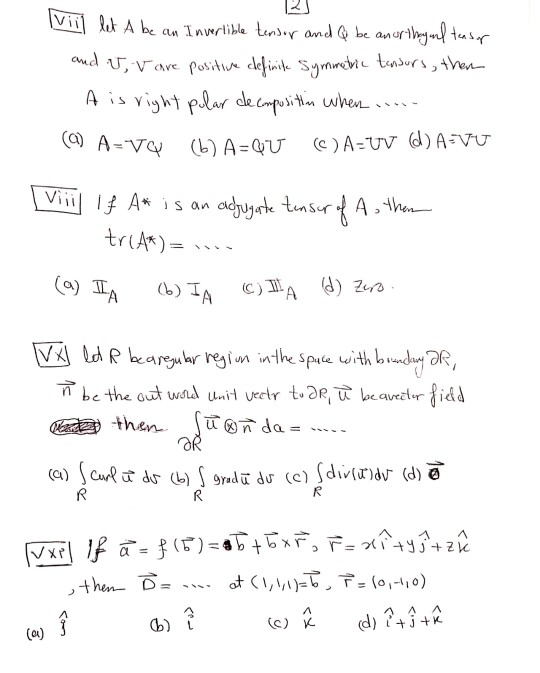 [2]
[vii] let A be an Invertible tensor and Q be an orthogonal tensor
and U, V are positive definite symmetric tensors, then
A is right polar decomposition when .....
(a) A=VQ (b) A=QU (c) A=UV (d) A=VU
[Viii] If A* is an adjugate tensor of A, then
tr(A*) = ....
(a) II_A (b) I_A (c) III_A (d) Zero.
[VX] let R be a regular region in the space with boundary ∂R,
n⃗ be the out word unit vectr to ∂R, u⃗ be a vector field
then ∫_∂R u⃗ ⊗ n⃗ da = .....
(a) ∫_R curl u⃗ dv (b) ∫_R grad u⃗ dv (c) ∫_R div(u⃗) dv (d) 0⃗
If a⃗ = f(b⃗) = b⃗ + b⃗ × r⃗, r⃗ = x î + y ĵ + z k̂
, then D⃗ = .... at (1,1,1)=b⃗, r⃗ = (0,-1,0)
(a) ĵ (b) î (c) k̂ (d) î+ĵ+k̂